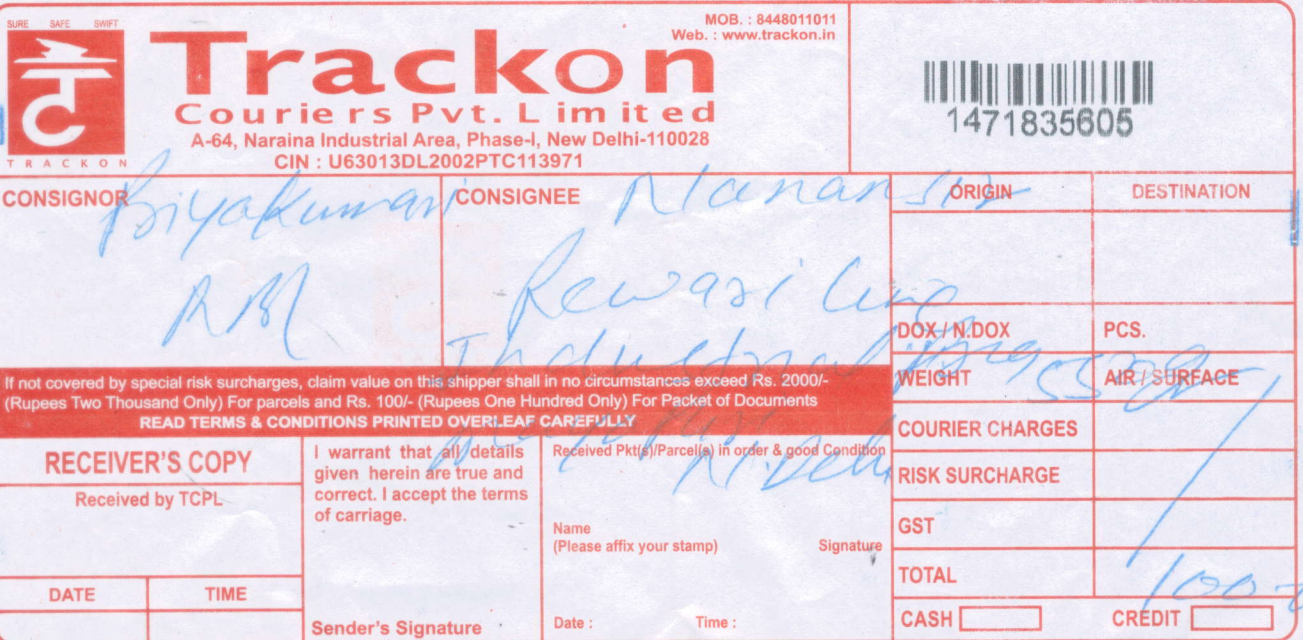 SURE SAFE SWIFT
TRACKON
Trackon
Couriers Pvt. Limited
A-64, Naraina Industrial Area, Phase-I, New Delhi-110028
CIN : U63013DL2002PTC113971
MOB. : 8448011011
Web. : www.trackon.in
1471835605
CONSIGNOR
CONSIGNEE
Rewari Line
Industrial
N. Delhi
ORIGIN
DESTINATION
DOX / N.DOX
PCS.
WEIGHT
AIR / SURFACE
COURIER CHARGES
RISK SURCHARGE
GST
TOTAL
100
CASH
CREDIT
If not covered by special risk surcharges, claim value on this shipper shall in no circumstances exceed Rs. 2000/-
(Rupees Two Thousand Only) For parcels and Rs. 100/- (Rupees One Hundred Only) For Packet of Documents
READ TERMS & CONDITIONS PRINTED OVERLEAF CAREFULLY
RECEIVER'S COPY
Received by TCPL
DATE
TIME
I warrant that all details
given herein are true and
correct. I accept the terms
of carriage.
Sender's Signature
Received Pkt(s)/Parcel(s) in order & good Condition
Name
(Please affix your stamp)
Signature
Date :
Time :